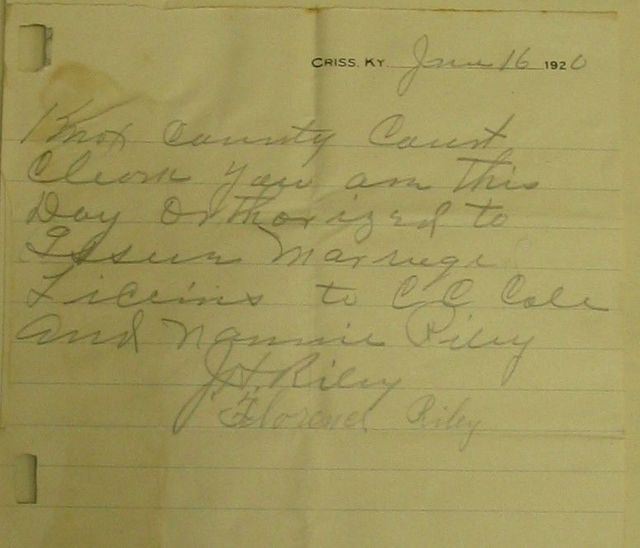 CRISS, KY. June 16 1920
Knox County Court
Clerk you are this
Day Orthorized to
Issue Marrige
Liceins to C C Cole
and Nannie Riley
J. H. Riley
Florence Riley